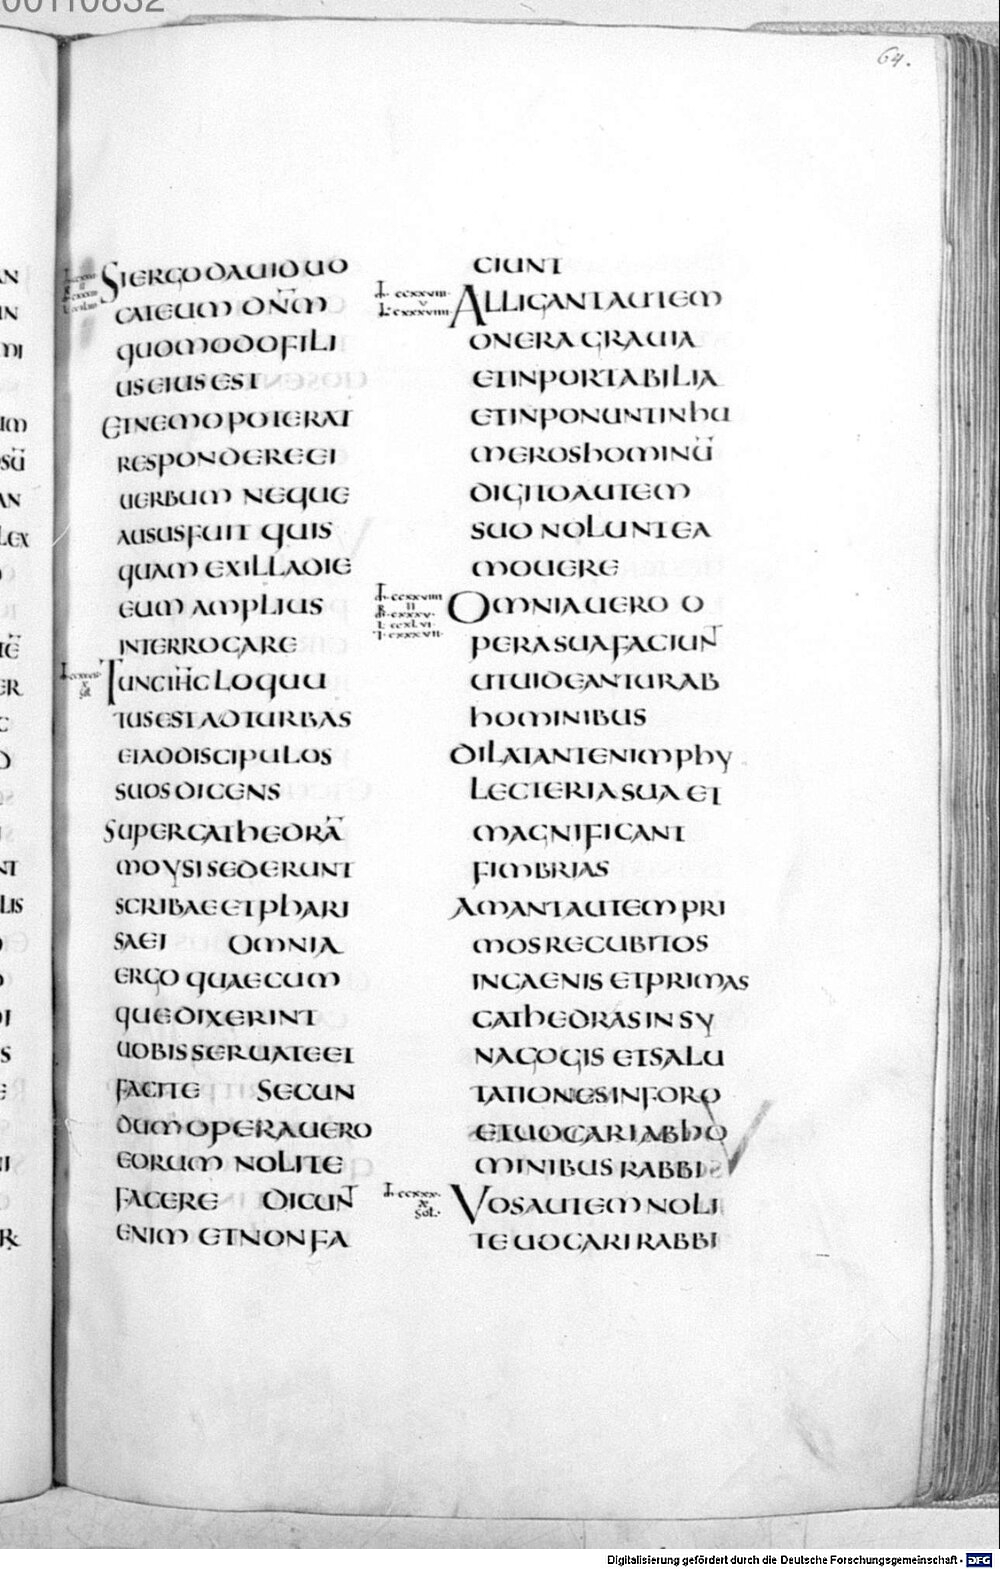 00110832
64.
SIERGODAVIDUO
CATEUM DN̄M
QUOMODOFILI
USEIUSEST
ETNEMOPOTERAT
RESPONDEREEI
UERBUM NEQUE
AUSUSFUIT QUIS
QUAM EXILLADIE
EUM AMPLIUS
INTERROGARE
TUNCIH̄CLOQUU
TUSESTADTURBAS
ETADDISCIPULOS
SUOSDICENS
SUPERCATHEDRĀ
MOYSISEDERUNT
SCRIBAEETPHARI
SAEI OMNIA
ERGO QUAECUM
QUEDIXERINT
UOBISSERUATEET
FACITE SECUN
DUMOPERAUERO
EORUM NOLITE
FACERE DICUNT
ENIM ETNONFA
CIUNT
L ccxxviii
V
L cxxxviiii
ALLIGANTAUTEM
ONERAGRAUIA
ETINPORTABILIA
ETINPONUNTINHU
MEROSHOMINŪ
DIGITOAUTEM
SUO NOLUNTEA
MOUERE
ccxxviiii
II
cxxxv
L ccxlvi
I cxxxvii
OMNIAUERO O
PERASUAFACIUNT
UTUIDEANTURAB
HOMINIBUS
DILATANTENIMPHY
LECTERIASUAET
MAGNIFICANT
FIMBRIAS
AMANTAUTEMPRI
MOSRECUBITOS
INCAENIS ETPRIMAS
CATHEDRASINSY
NAGOGIS ETSALU
TATIONESINFORO
ETUOCARIABHO
MINIBUS RABBI
ccxxx
X
Sol.
VOSAUTEMNOLI
TE UOCARI RABBI
Digitalisierung gefördert durch die Deutsche Forschungsgemeinschaft - DFG